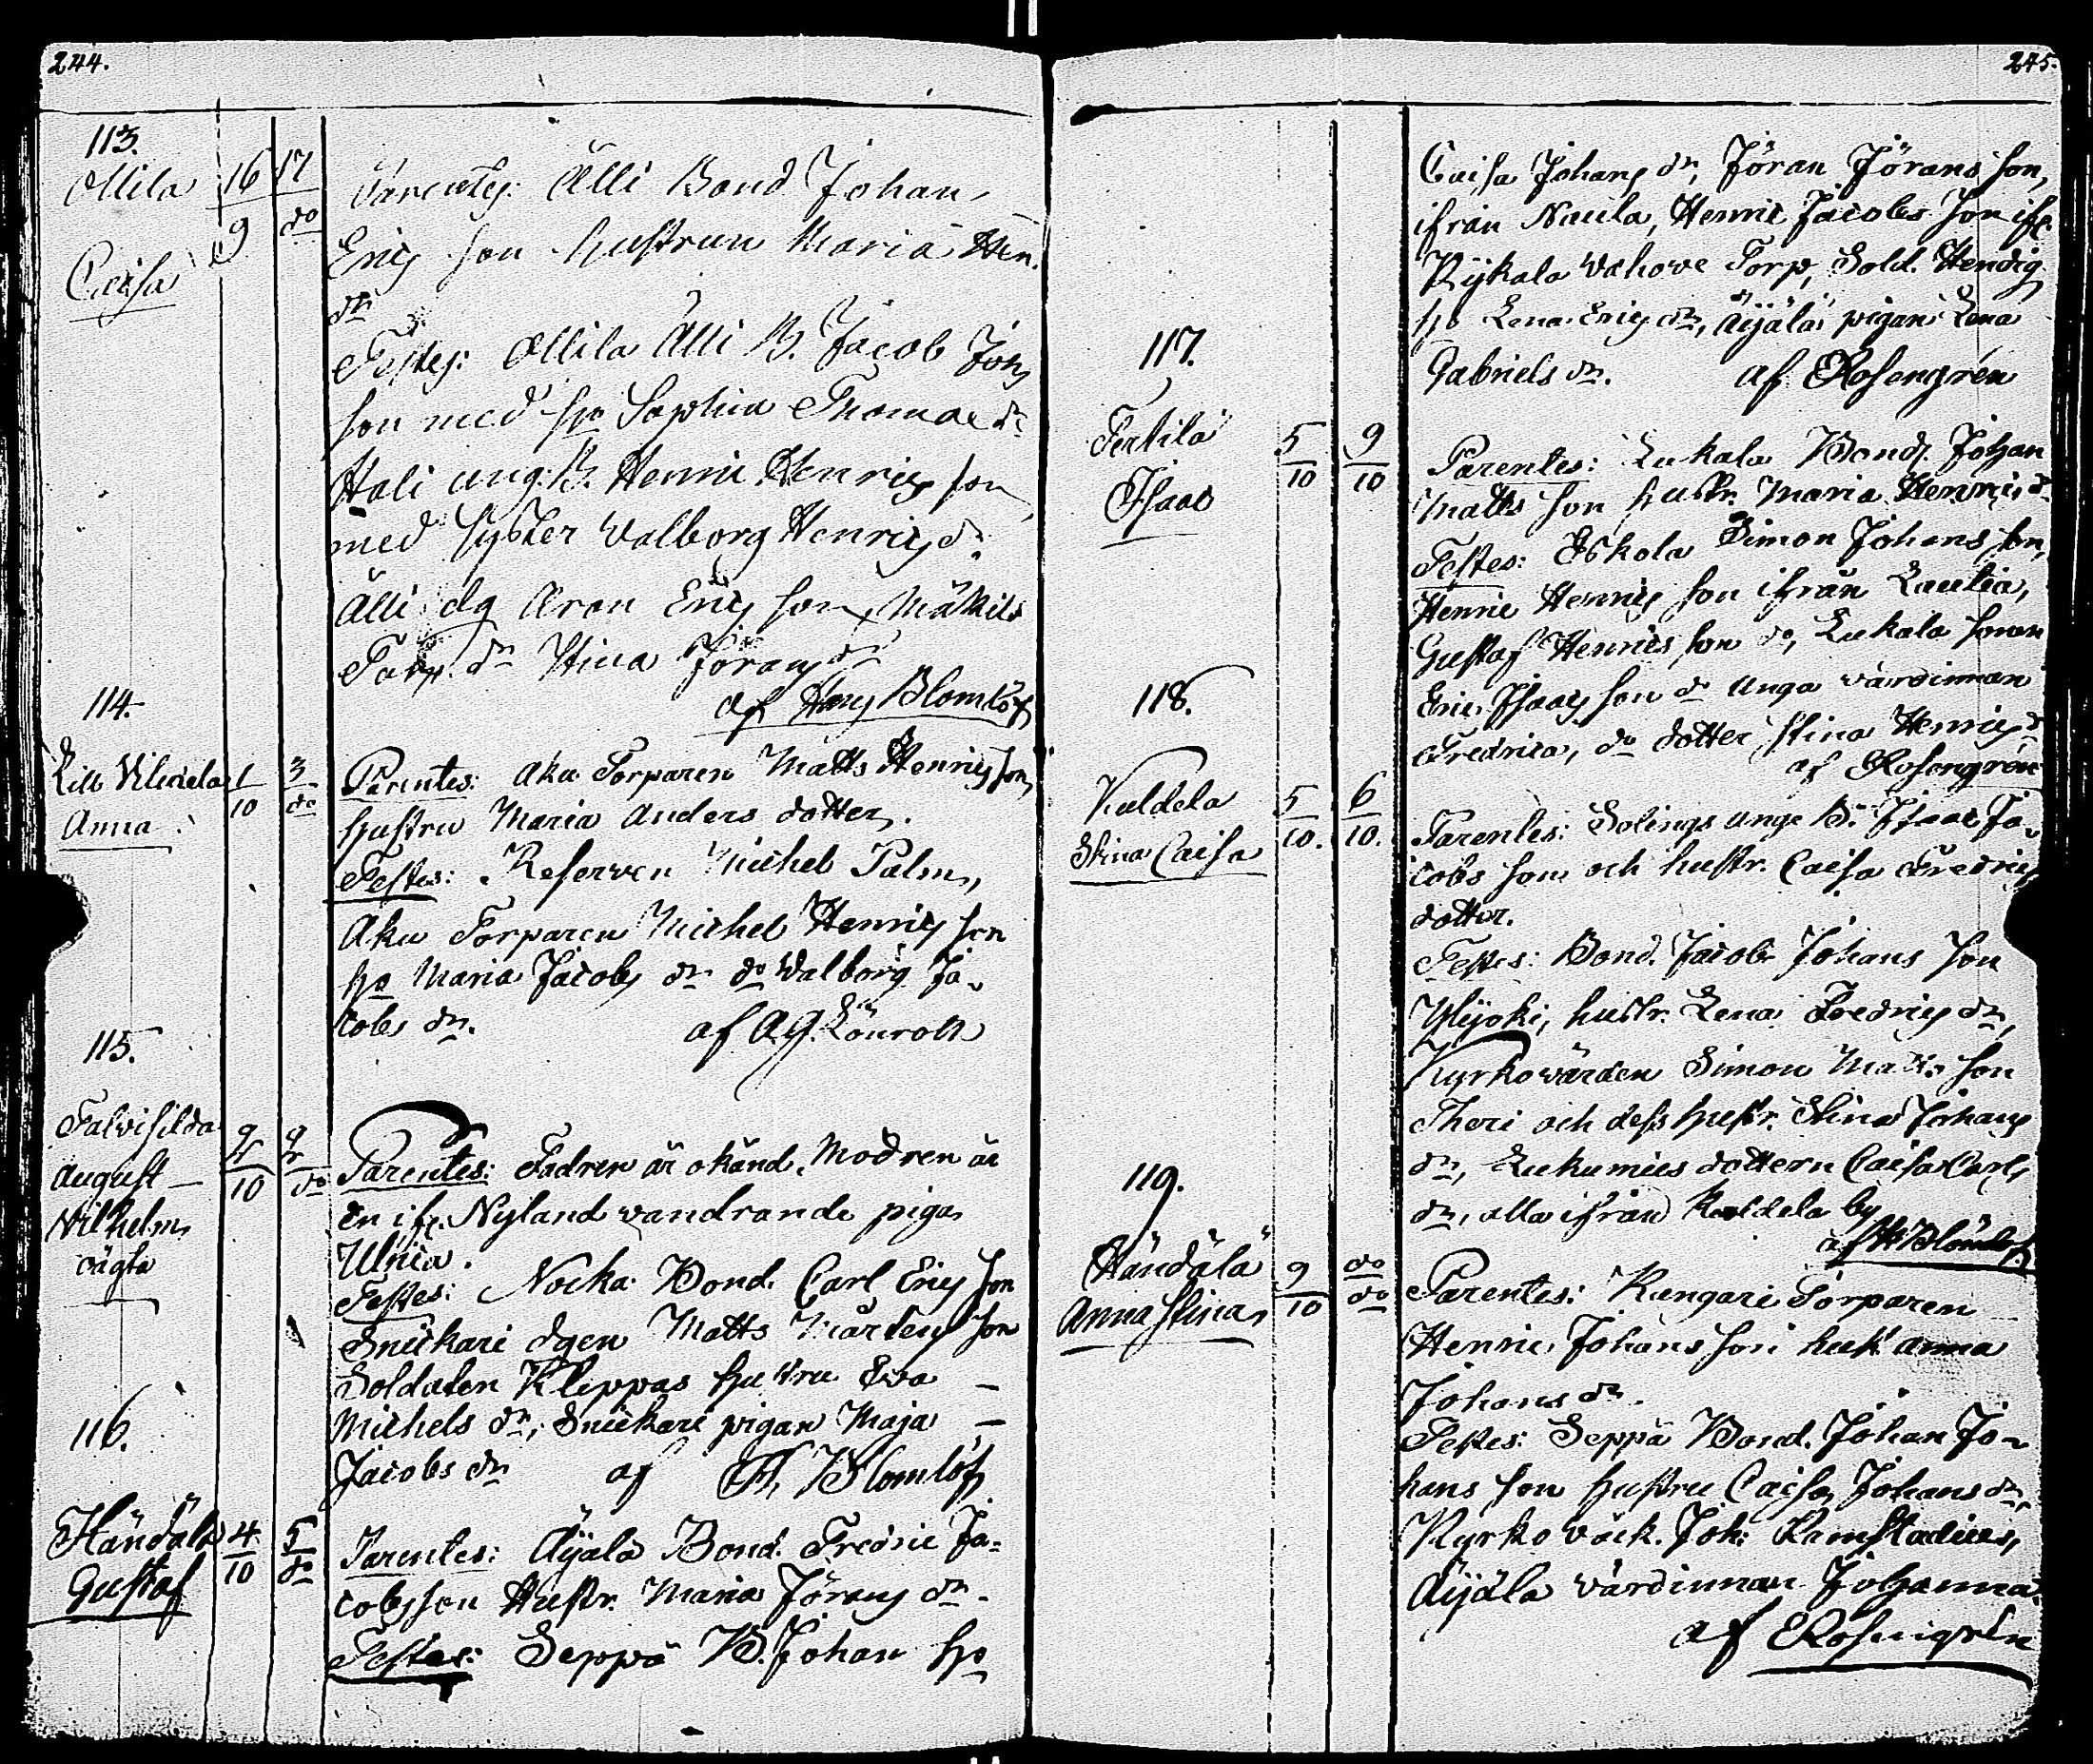 244.
113.
Ollila 16/9 17/do
Caisa
Parentes: Älli Bond Johan
Erics son hustrun Maria Hen.
dr
Testes: Ollila Älli B. Jacob Joh
son med ho Sophia Thomae dr
Hali ung. B. Henric Henrics son
med syster Walborg Henrics dr.
Älli dg Aron Erics son,
Torp. dr Stina Jörans dr
af Blomlöf
114.
Lill 1/10 3/do
Anna
Parentes: Aku Torparen Matts Henrics son,
hustru Maria Anders dotter.
Testes: Reserven Michel Palm,
Aku Torparen Michel Henrics son
ho Maria Jacobs dr do Walborg Ja-
cobs dr. af A.G. Lönroth
115.
Talvisilda
August 4/10 4/do
Wilhelm
oägta
Parentes: Fadren är okänd, Modren är
en ifr. Nyland vandrande piga
Ulrica.
Testes: Nocka Bond. Carl Erics son
Snickari dgen Matts Mårtens son
Soldaten Klippas hustru Eva
Michels dr, Snickari pigan Maja
Jacobs dr af H. Blomlöf
116.
Händälä 4/10 5/do
Gustaf
Parentes: Äijälä Bond. Fredric Ja=
cobsson Hustr. Maria Jörans dr.
Testes: Seppä B. Johan ho
245.
Caisa Johans dr, Jöran Jörans son,
ifrån Naula, Henric Jacobs son ifr.
Rijkala Wahove Torp, Sold. Hendig
ho Lena Erics dr, Äijälä pigan Lena
Gabriels dr. af Rosengrén
117.
Tertilä 5/10 9/10
Isaac
Parentes: Lukala Bond. Johan
Matts son hustr. Maria Henrics dr.
Testes: Eskola Simon Johans son,
Henric Henrics son ifrån Lautia,
Gustaf Henrics son do, Lukala sonen
Eric Isaacs son do unga värdinnan
Fredrica, do dotter Stina Henrics dr
af Rosengrén
118.
Kuldela 5/10. 6/10.
Stina Caisa
Parentes: Solings unge B. Isaac Ja-
cobs son och hustr. Caisa Fredrics
dotter.
Testes: Bond. Jacob Johans son
Ylijoki, hustr. Lena Fredrics dr,
Kyrkovärden Simon Matts son
Theri och dess hustr. Stina Johans
dr, dottern Caisa Carls
dr, alla ifrån Kuldela by
af H Blomlöf
119.
Händälä 9/10 do/do
Anna Stina
Parentes: Kangari Torparen
Henric Johans son hust. Anna
Johans dr.
Testes: Seppä Bond. Johan Jo-
hans son hustru Caisa Johans dr,
Kyrko väck. Joh: Ramstadius,
Äijälä värdinnan Johanna.
af Rosengrén